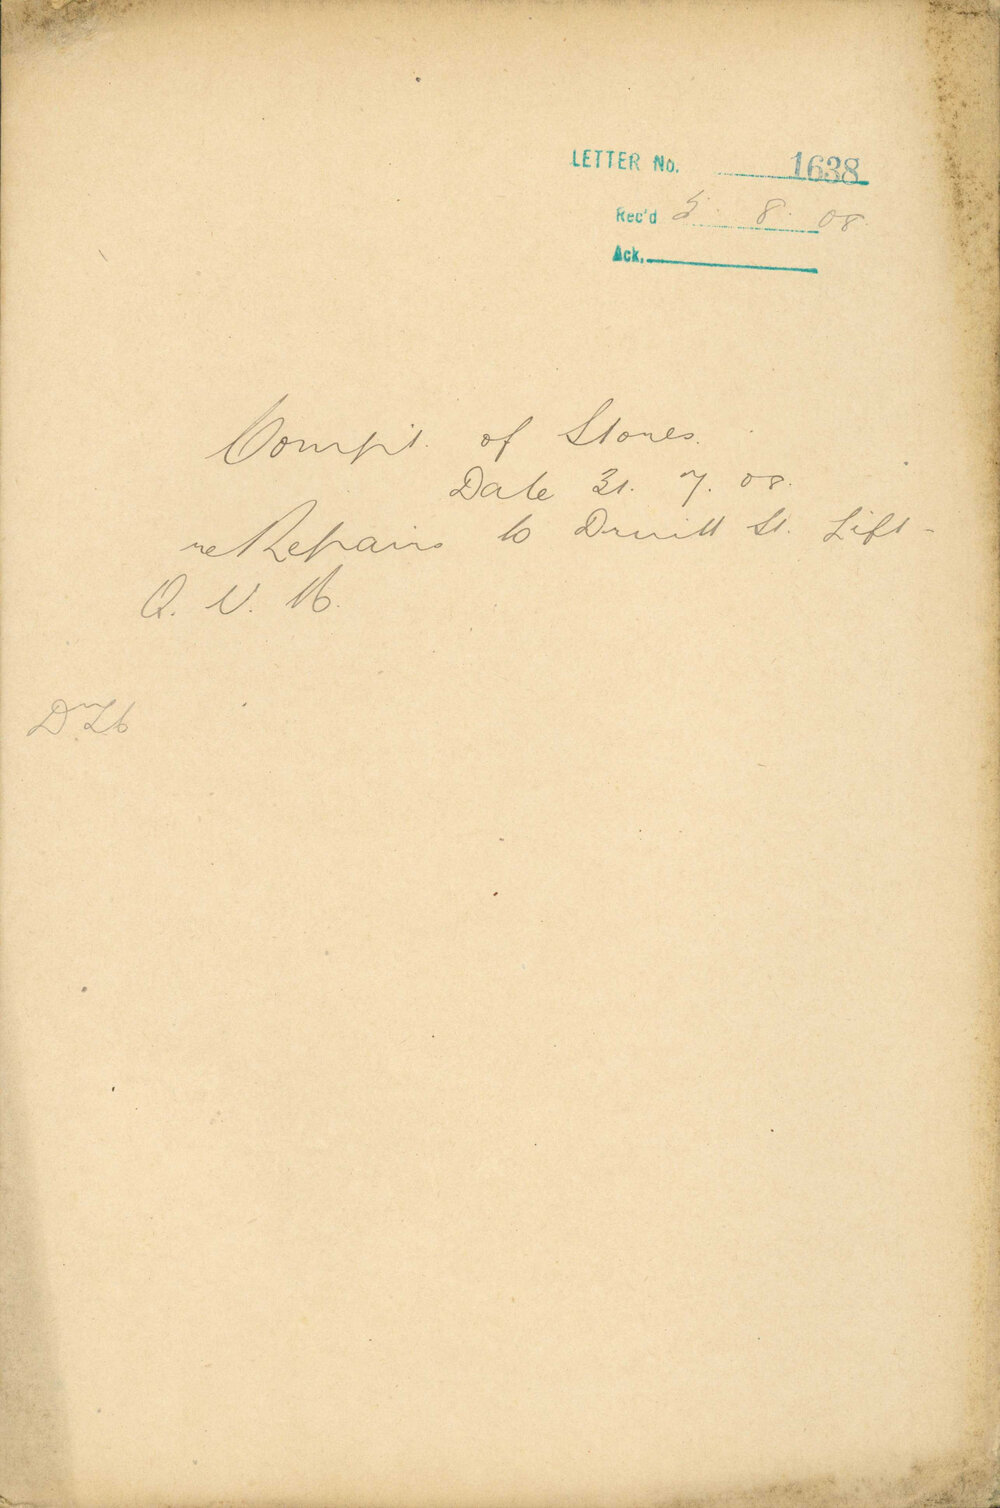 LETTER No. 1638
Rec'd 5. 8. 08
Ack.
Compt. of Stores.
Date 31. 7. 08.
re Repairs to Druitt St. Lift -
Q. V. M.